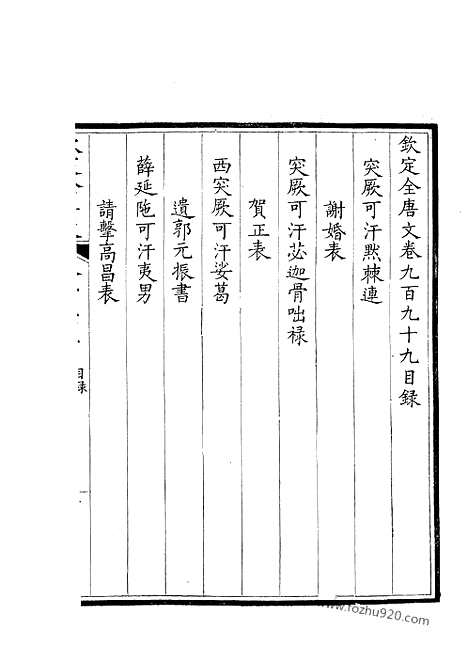 欽定全唐文卷九百九十九目録
突厥可汗黙棘連
謝婚表
突厥可汗苾迦骨咄禄
賀正表
西突厥可汗娑葛
遺郭元振書
薛延陁可汗夷男
請擊高昌表
目録
www.fozhu920.com